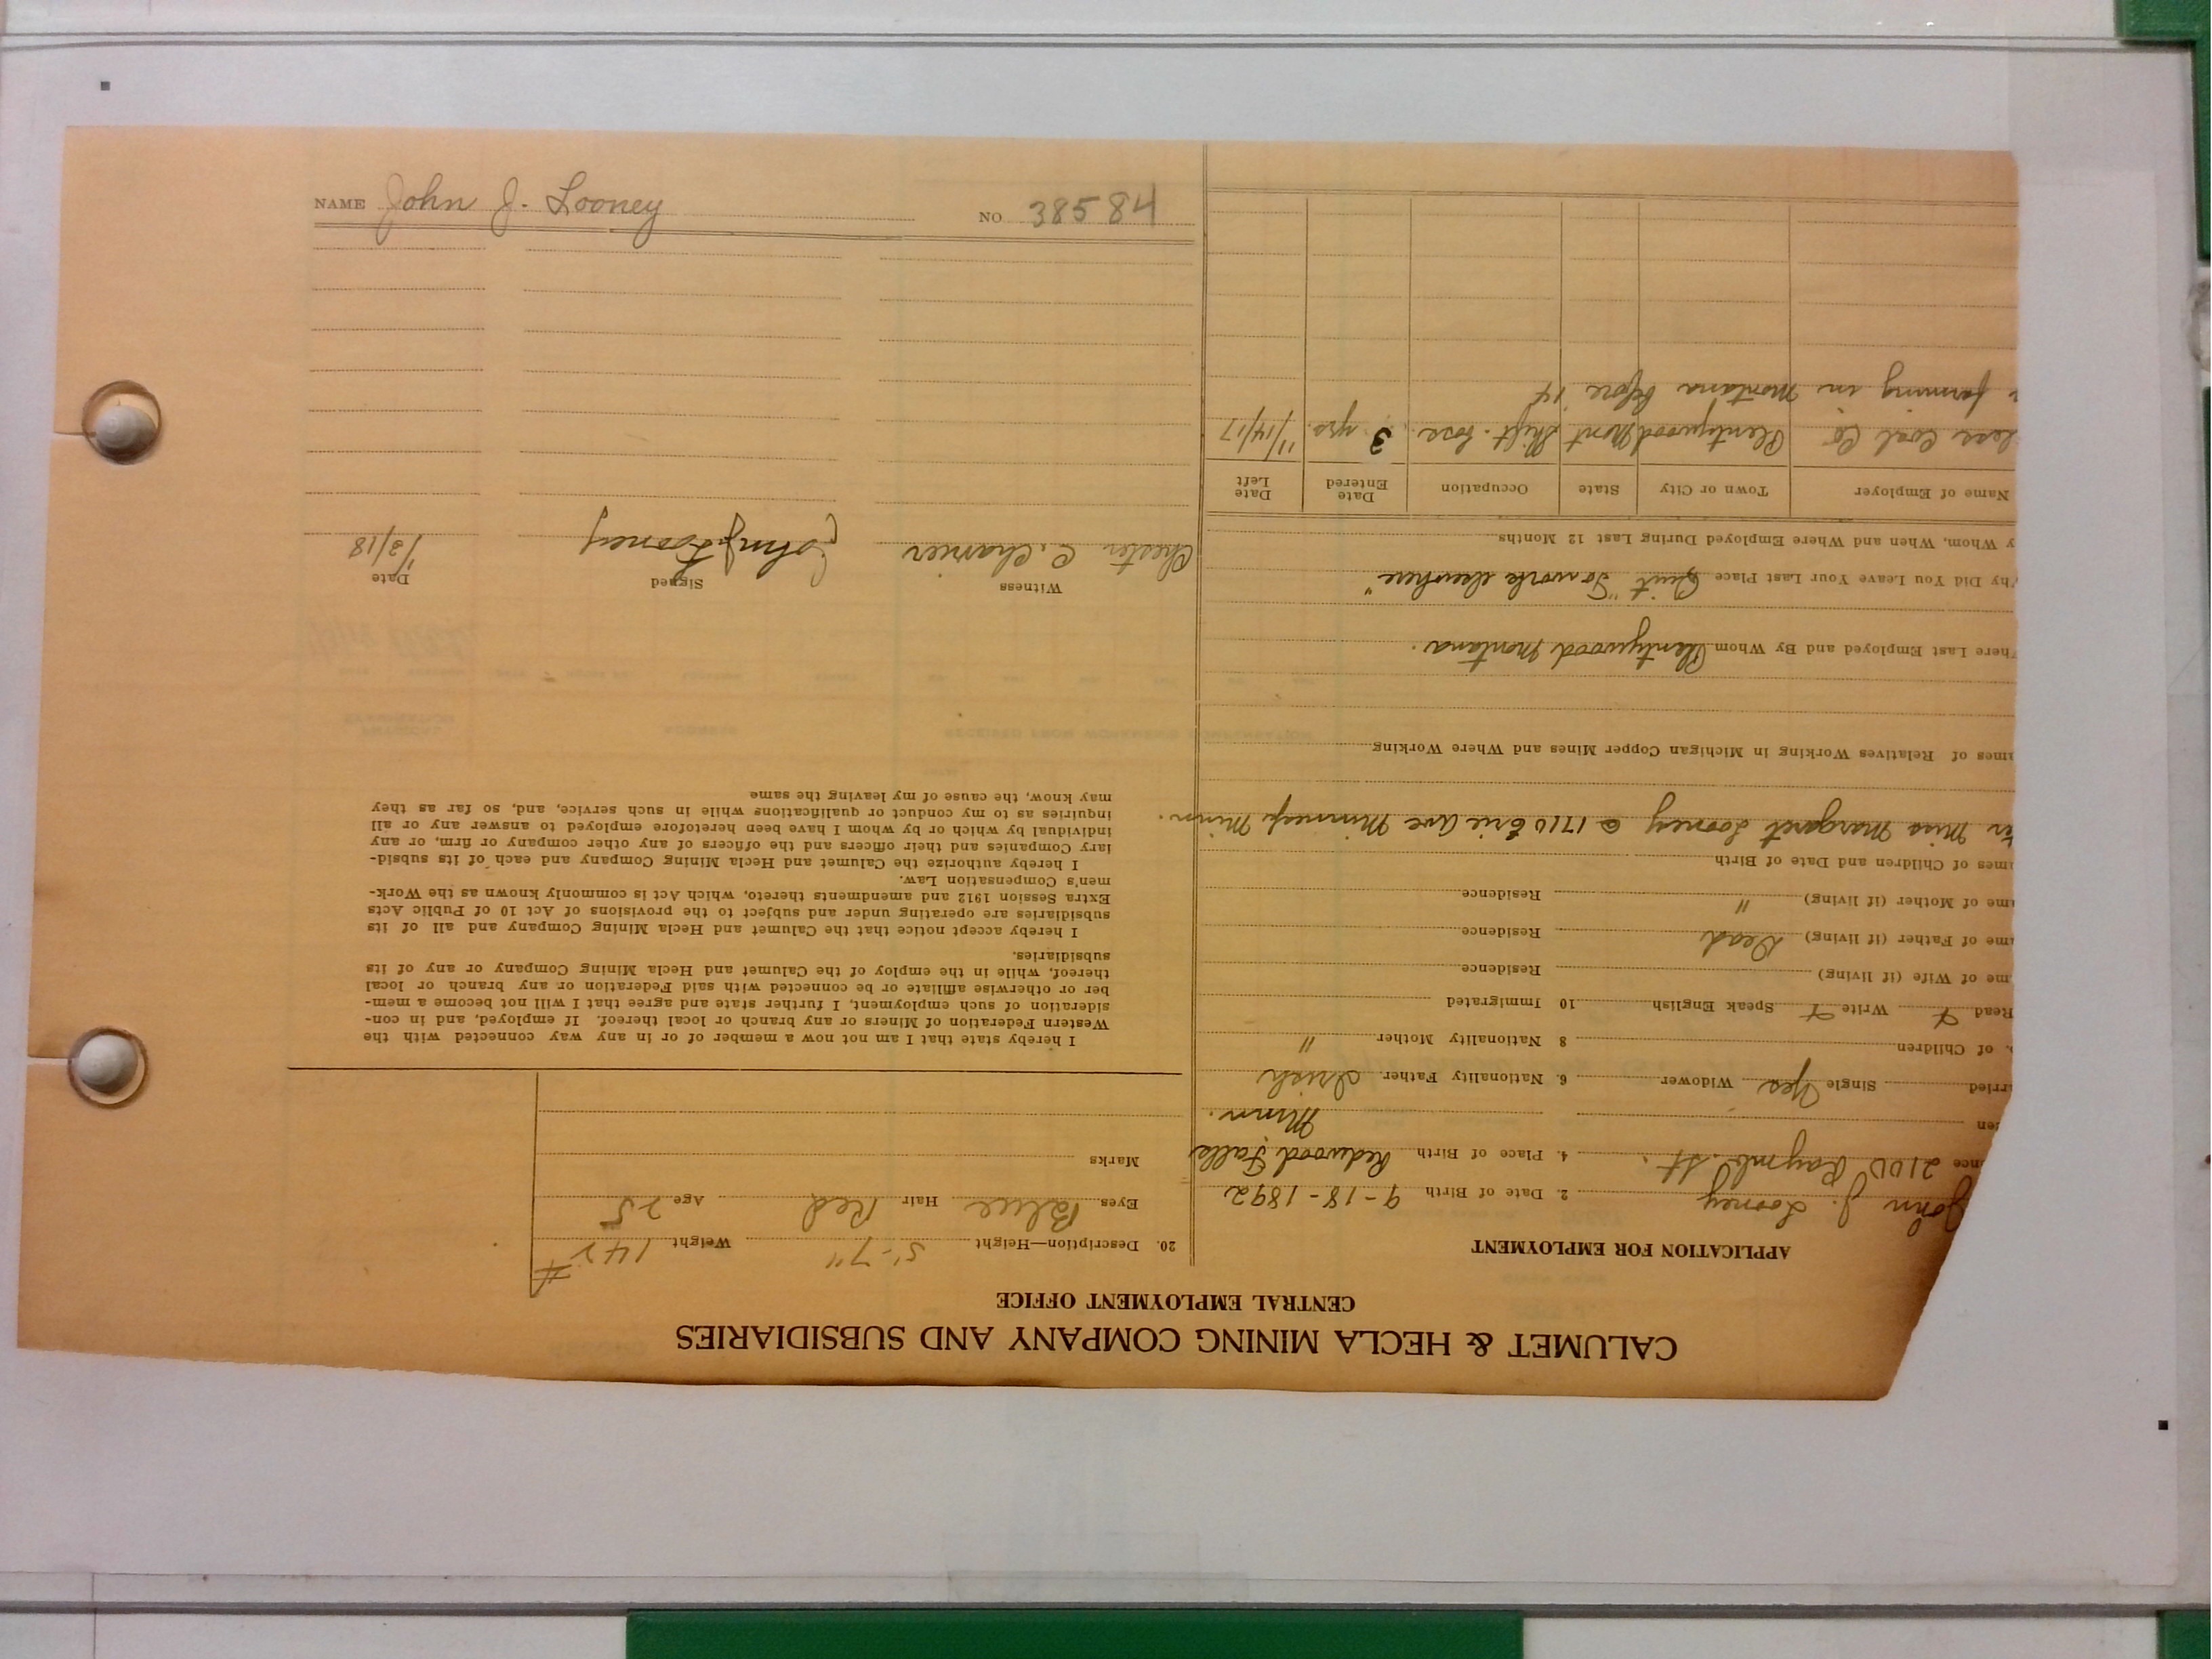 NAME John J. Looney NO 38584
CALUMET & HECLA MINING COMPANY AND SUBSIDIARIES
CENTRAL EMPLOYMENT OFFICE
APPLICATION FOR EMPLOYMENT
John J. Looney 2. Date of Birth 9-18-1892
nce 2100 Raymb. St. 4. Place of Birth Redwood Falls
en Minn.
rried Single Yes Widower 6. Nationality Father Irish
. of Children 8 Nationality Mother "
Read Write Speak English 10 Immigrated
me of Wife (if living) Residence
me of Father (if living) Dead Residence
me of Mother (if living) " Residence
ames of Children and Date of Birth
ter Miss Margaret Looney @ 1710 Erie Ave Minneap. Minn.
ames of Relatives Working in Michigan Copper Mines and Where Working
here Last Employed and By Whom Plentywood Montana.
hy Did You Leave Your Last Place Quit "To work elsewhere"
y Whom, When and Where Employed During Last 12 Months
Name of Employer Town or City State Occupation Date Entered Date Left
less Coal Co Plentywood Mont Shift. boss. 3 yrs. 11/14/17
farming in Montana before '14
20. Description—Height 5'-7" Weight 142 #
Eyes Blue Hair Red Age 25
Marks
I hereby state that I am not now a member of or in any way connected with the
Western Federation of Miners or any branch or local thereof. If employed, and in con-
sideration of such employment, I further state and agree that I will not become a mem-
ber or otherwise affiliate or be connected with said Federation or any branch or local
thereof, while in the employ of the Calumet and Hecla Mining Company or any of its
subsidiaries.
I hereby accept notice that the Calumet and Hecla Mining Company and all of its
subsidiaries are operating under and subject to the provisions of Act 10 of Public Acts
Extra Session 1912 and amendments thereto, which Act is commonly known as the Work-
men's Compensation Law.
I hereby authorize the Calumet and Hecla Mining Company and each of its subsid-
iary Companies and their officers and the officers of any other company or firm, or any
individual by which or by whom I have been heretofore employed to answer any or all
inquiries as to my conduct or qualifications while in such service, and, so far as they
may know, the cause of my leaving the same
Witness Signed Date
Chester C. Charier John J. Looney 1/3/18